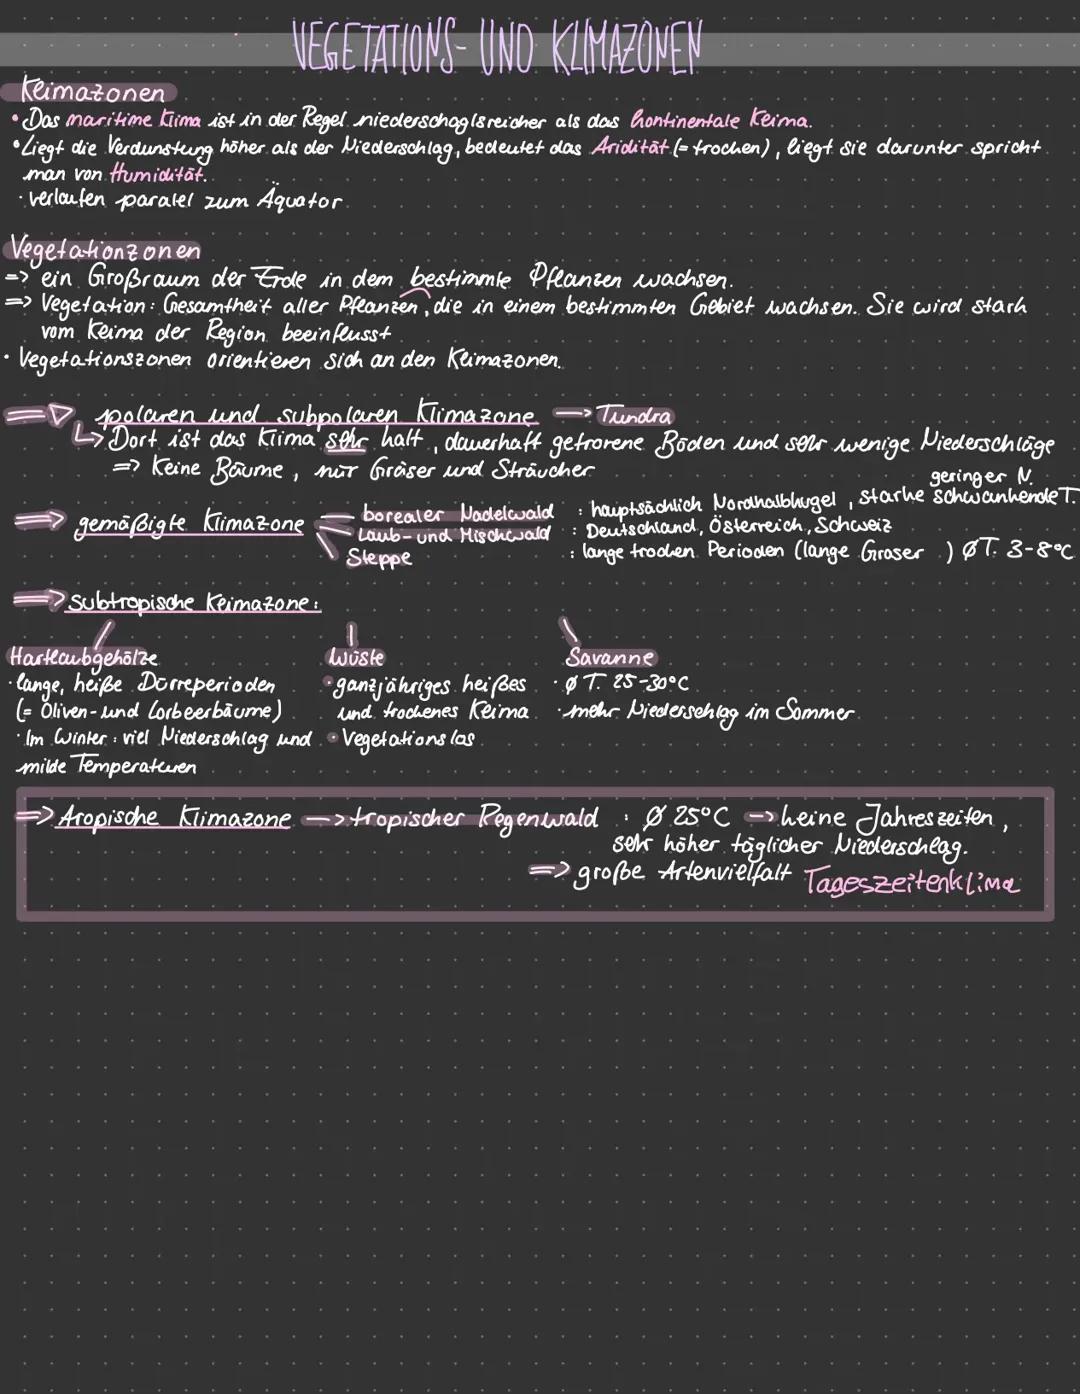 VEGETATIONS- UND KLIMAZONEN
Klimazonen
• Das maritime Klima ist in der Regel niederschaglsreicher als das kontinentale Klima.
• Liegt die Verdunstung höher als der Niederschlag, bedeutet das Aridität (= trocken), liegt sie darunter spricht
man von Humidität.
• verlaufen paralel zum Äquator
Vegetationzonen
=> ein Großraum der Erde in dem bestimmte Pflanzen wachsen.
=> Vegetation: Gesamtheit aller Pflanzen, die in einem bestimmten Gebiet wachsen. Sie wird stark
vom Klima der Region beeinflusst
• Vegetationszonen orientieren sich an den Klimazonen.
=> polaren und subpolaren Klimazone -> Tundra
↳ Dort ist das Klima sehr kalt, dauerhaft gefrorene Böden und sehr wenige Niederschläge
=> Keine Bäume, nur Gräser und Sträucher
geringer N.
=> gemäßigte Klimazone - borealer Nadelwald : hauptsächlich Nordhalbkugel, starke schwankende T.
Laub- und Mischwald : Deutschland, Österreich, Schweiz
Steppe : lange trocken Perioden (lange Gräser ) Ø T. 3-8°C
=> Subtropische Klimazone:
Hartlaubgehölze
• lange, heiße Dürreperioden
(= Oliven- und Lorbeerbäume)
• Im Winter: viel Niederschlag und
milde Temperaturen
Wüste
• ganzjähriges heißes
und trockenes Klima
• Vegetationslos
Savanne
• Ø T. 25-30°C
• mehr Niederschlag im Sommer
=> Tropische Klimazone -> tropischer Regenwald : Ø 25°C -> keine Jahreszeiten,
sehr höher täglicher Niederschlag.
=> große Artenvielfalt Tageszeitenklima